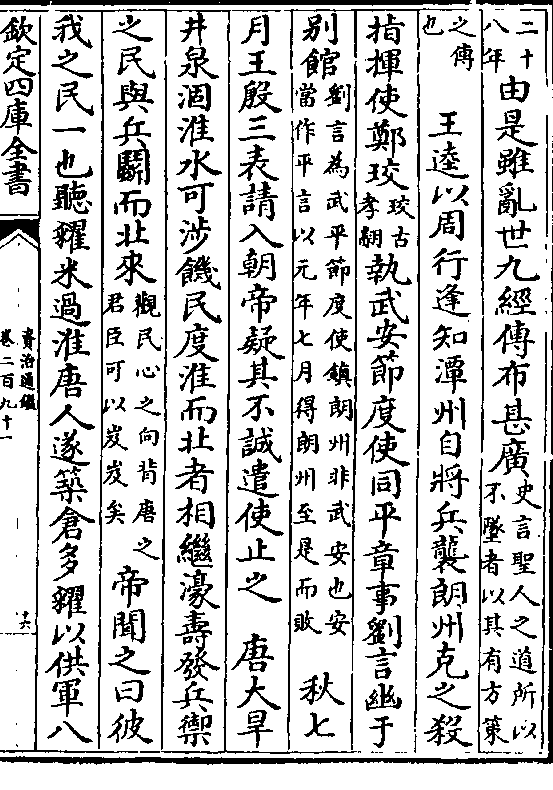 二十八年由是雖亂世九經傳布甚廣史言聖人之道所以不墜者以其有方策
之傳也　王逵以周行逢知潭州自將兵襲朗州克之殺
指揮使鄭珓珓古孝翻執武安節度使同平章事劉言幽于
別館劉言為武平節度使鎮朗州非武安也安當作平言以元年七月得朗州至是而敗　秋七
月王殷三表請入朝帝疑其不誠遣使止之　唐大旱
井泉涸淮水可涉饑民度淮而北者相繼濠壽發兵禦
之民與兵鬬而北來觀民心之向背唐之君臣可以岌岌矣帝聞之曰彼
我之民一也聽糴米過淮唐人遂築倉多糴以供軍八
欽定四庫全書
資治通鑑
卷二百九十一
十六